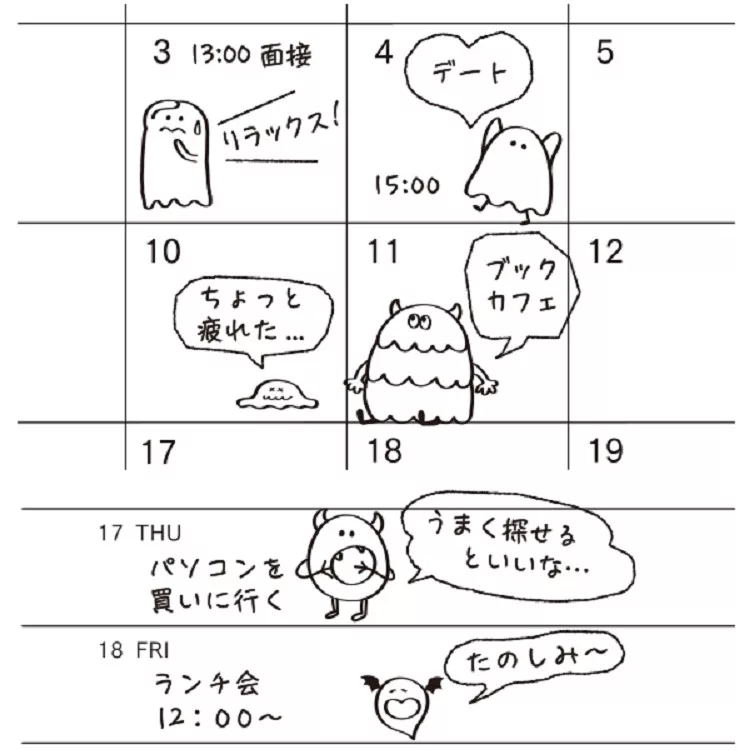 3 13:00 面接
リラックス!
4
デート
15:00
5
10
ちょっと
疲れた...
11
ブック
カフェ
12
17
18
19
17 THU
パソコンを
買いに行く
うまく探せる
といいな...
18 FRI
ランチ会
12:00~
たのしみ~